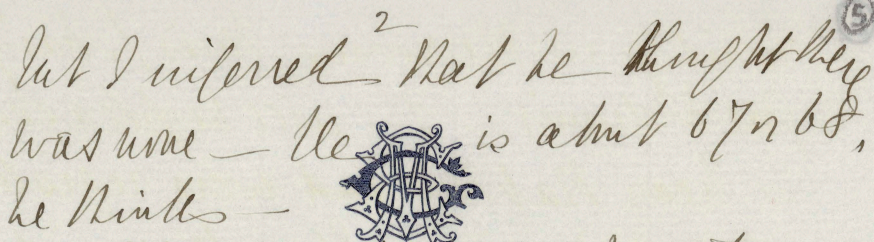 5
2
but I inferred that he thought there
was none – He is about 67 or 68,
he thinks –